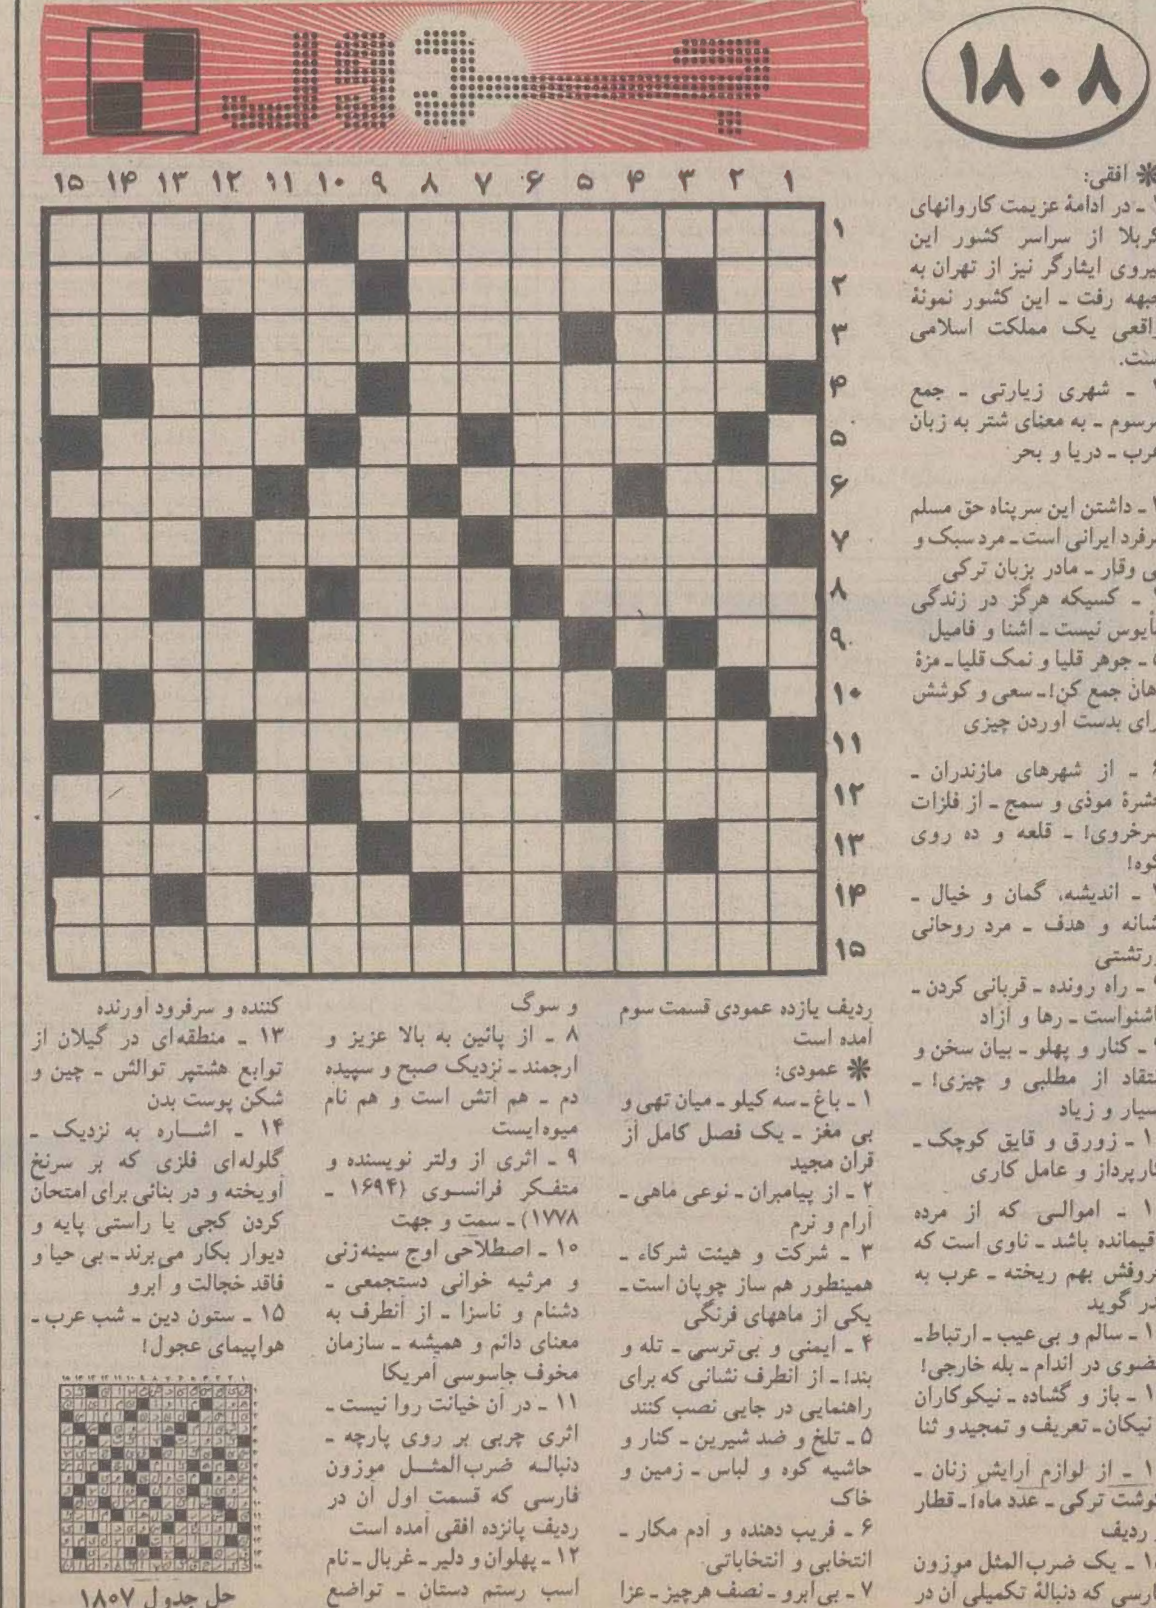 جدول
۱۸۰۸
۱ ۲ ۳ ۴ ۵ ۶ ۷ ۸ ۹ ۱۰ ۱۱ ۱۲ ۱۳ ۱۴ ۱۵
۱
۲
۳
۴
۵
۶
۷
۸
۹
۱۰
۱۱
۱۲
۱۳
۱۴
۱۵
افقی:
ـ در ادامهٔ عزیمت کاروانهای
کربلا از سراسر کشور این
نیروی ایثارگر نیز از تهران به
جبهه رفت ـ این کشور نمونهٔ
واقعی یک مملکت اسلامی
است.
ـ شهری زیارتی ـ جمع
مرسوم ـ به معنای شتر به زبان
عرب ـ دریا و بحر
ـ داشتن این سرپناه حق مسلم
هرفرد ایرانی است ـ مرد سبک و
بی وقار ـ مادر بزبان ترکی
ـ کسیکه هرگز در زندگی
مأیوس نیست ـ آشنا و فامیل
ـ جوهر قلیا و نمک قلیا ـ مزهٔ
دهان جمع کن! ـ سعی و کوشش
برای بدست آوردن چیزی
۶ ـ از شهرهای مازندران ـ
حشرهٔ موذی و سمج ـ از فلزات
سرخروی! ـ قلعه و ده روی
کوه!
ـ اندیشه، گمان و خیال ـ
نشانه و هدف ـ مرد روحانی
زرتشتی
ـ راه رونده ـ قربانی کردن ـ
ناشنواست ـ رها و آزاد
ـ کنار و پهلو ـ بیان سخن و
انتقاد از مطلبی و چیزی! ـ
بسیار و زیاد
ـ زورق و قایق کوچک ـ
کارپرداز و عامل کاری
ـ اموالی که از مرده
باقیمانده باشد ـ ناوی است که
حروفش بهم ریخته ـ عرب به
پدر گوید
ـ سالم و بی‌عیب ـ ارتباط ـ
عضوی در اندام ـ بله خارجی!
ـ باز و گشاده ـ نیکوکاران
و نیکان ـ تعریف و تمجید و ثنا
ـ از لوازم آرایش زنان ـ
گوشت ترکی ـ عدد ماه! ـ قطار
و ردیف
ـ یک ضرب‌المثل موزون
فارسی که دنبالهٔ تکمیلی آن در
ردیف یازده عمودی قسمت سوم
آمده است
عمودی:
۱ ـ باغ ـ سه کیلو ـ میان تهی و
بی مغز ـ یک فصل کامل از
قرآن مجید
۲ ـ از پیامبران ـ نوعی ماهی ـ
آرام و نرم
۳ ـ شرکت و هیئت شرکاء ـ
همینطور هم ساز چوپان است ـ
یکی از ماههای فرنگی
۴ ـ ایمنی و بی‌ترسی ـ تله و
بند! ـ از آنطرف نشانی که برای
راهنمایی در جایی نصب کنند
۵ ـ تلخ و ضد شیرین ـ کنار و
حاشیه کوه و لباس ـ زمین و
خاک
۶ ـ فریب دهنده و آدم مکار ـ
انتخابی و انتخاباتی
۷ ـ بی‌آبرو ـ نصف هرچیز ـ عزا
و سوگ
۸ ـ از پائین به بالا عزیز و
ارجمند ـ نزدیک صبح و سپیده
دم ـ هم آتش است و هم نام
میوه‌ایست
۹ ـ اثری از ولتر نویسنده و
متفکر فرانسوی (۱۶۹۴ ـ
۱۷۷۸) ـ سمت و جهت
۱۰ ـ اصطلاحی اوج سینه‌زنی
و مرثیه خوانی دستجمعی ـ
دشنام و ناسزا ـ از آنطرف به
معنای دائم و همیشه ـ سازمان
مخوف جاسوسی آمریکا
۱۱ ـ در آن خیانت روا نیست ـ
اثری چربی بر روی پارچه ـ
دنباله ضرب‌المثل موزون
فارسی که قسمت اول آن در
ردیف پانزده افقی آمده است
۱۲ ـ پهلوان و دلیر ـ غربال ـ نام
اسب رستم دستان ـ تواضع
کننده و سرفرود آورنده
۱۳ ـ منطقه‌ای در گیلان از
توابع هشتپر توالش ـ چین و
شکن پوست بدن
۱۴ ـ اشاره به نزدیک ـ
گلوله‌ای فلزی که بر سرنخ
آویخته و در بنائی برای امتحان
کردن کجی یا راستی پایه و
دیوار بکار می‌برند ـ بی حیا و
فاقد خجالت و آبرو
۱۵ ـ ستون دین ـ شب عرب ـ
هواپیمای عجول!
حل جدول ۱۸۰۷